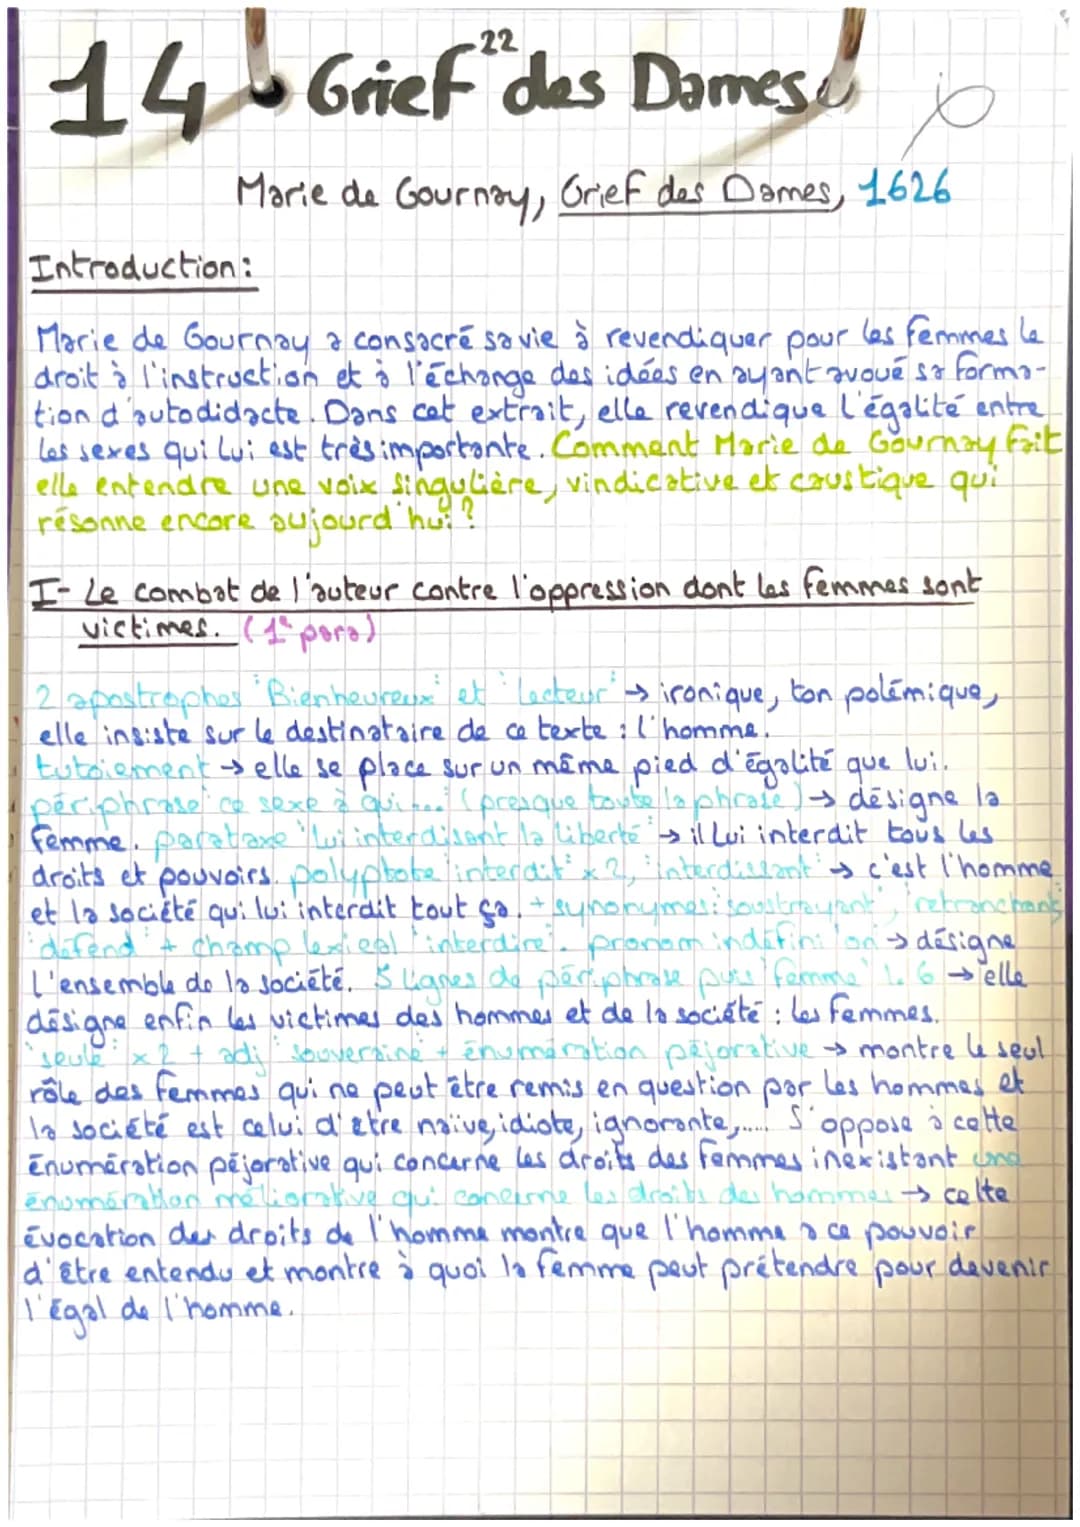 14 Grief des Dames
22
Marie de Gournay, Grief des Dames, 1626
Introduction:
Marie de Gournay a consacré sa vie à revendiquer pour les femmes le
droit à l'instruction et à l'échange des idées en ayant avoué sa forma-
tion d'autodidacte. Dans cet extrait, elle revendique l'égalité entre
les sexes qui lui est très importante. Comment Marie de Gournay fait
elle entendre une voix singulière, vindicative et caustique qui
résonne encore aujourd'hui ?
I- Le combat de l'auteur contre l'oppression dont les femmes sont
victimes. (1e para)
2 apostrophes "Bienheureux" et "lecteur" → ironique, ton polémique,
elle insiste sur le destinataire de ce texte : l'homme.
tutoiement → elle se place sur un même pied d'égalité que lui.
périphrase "ce sexe à qui ..." (presque toute la phrase) → désigne la
femme. parataxe "lui interdisant la liberté" → il lui interdit tous les
droits et pouvoirs. polyptote "interdit" x2, "interdissant" → c'est l'homme
et la société qui lui interdit tout ça. + synonymes: "soustrayant", "retranchant"
"défend" + champ lexical "interdire". pronom indéfini "on" → désigne
l'ensemble de la société. 5 lignes de périphrase puis "femme" l. 6 → elle
désigne enfin les victimes des hommes et de la société : les femmes.
"seule" x2 + adj "souveraine" + énumération péjorative → montre le seul
rôle des femmes qui ne peut être remis en question par les hommes et
la société est celui d'être naïve, idiote, ignorante,..... S'oppose à cette
énumération péjorative qui concerne les droits des femmes inexistant une
énumération méliorative qui concerne les droits des hommes → cette
évocation des droits de l'homme montre que l'homme a ce pouvoir
d'être entendu et montre à quoi la femme peut prétendre pour devenir
l'égal de l'homme.